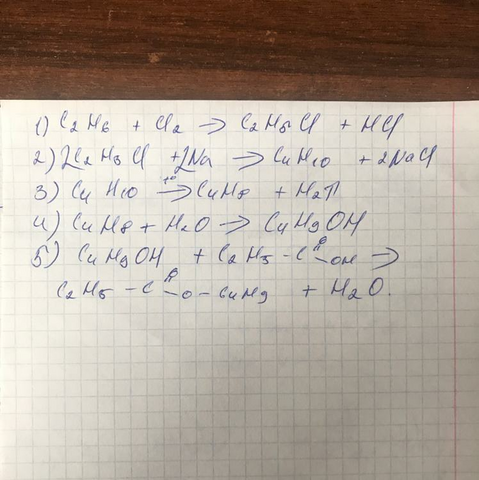 1) C2H6 + Cl2 → C2H5Cl + HCl
2) 2C2H5Cl + 2Na → C4H10 + 2NaCl
3) C4H10 →t° C4H8 + H2↑
4) C4H8 + H2O → C4H9OH
5) C4H9OH + C2H5 - C =O - OH →
C2H5 - C =O - O - C4H9 + H2O.